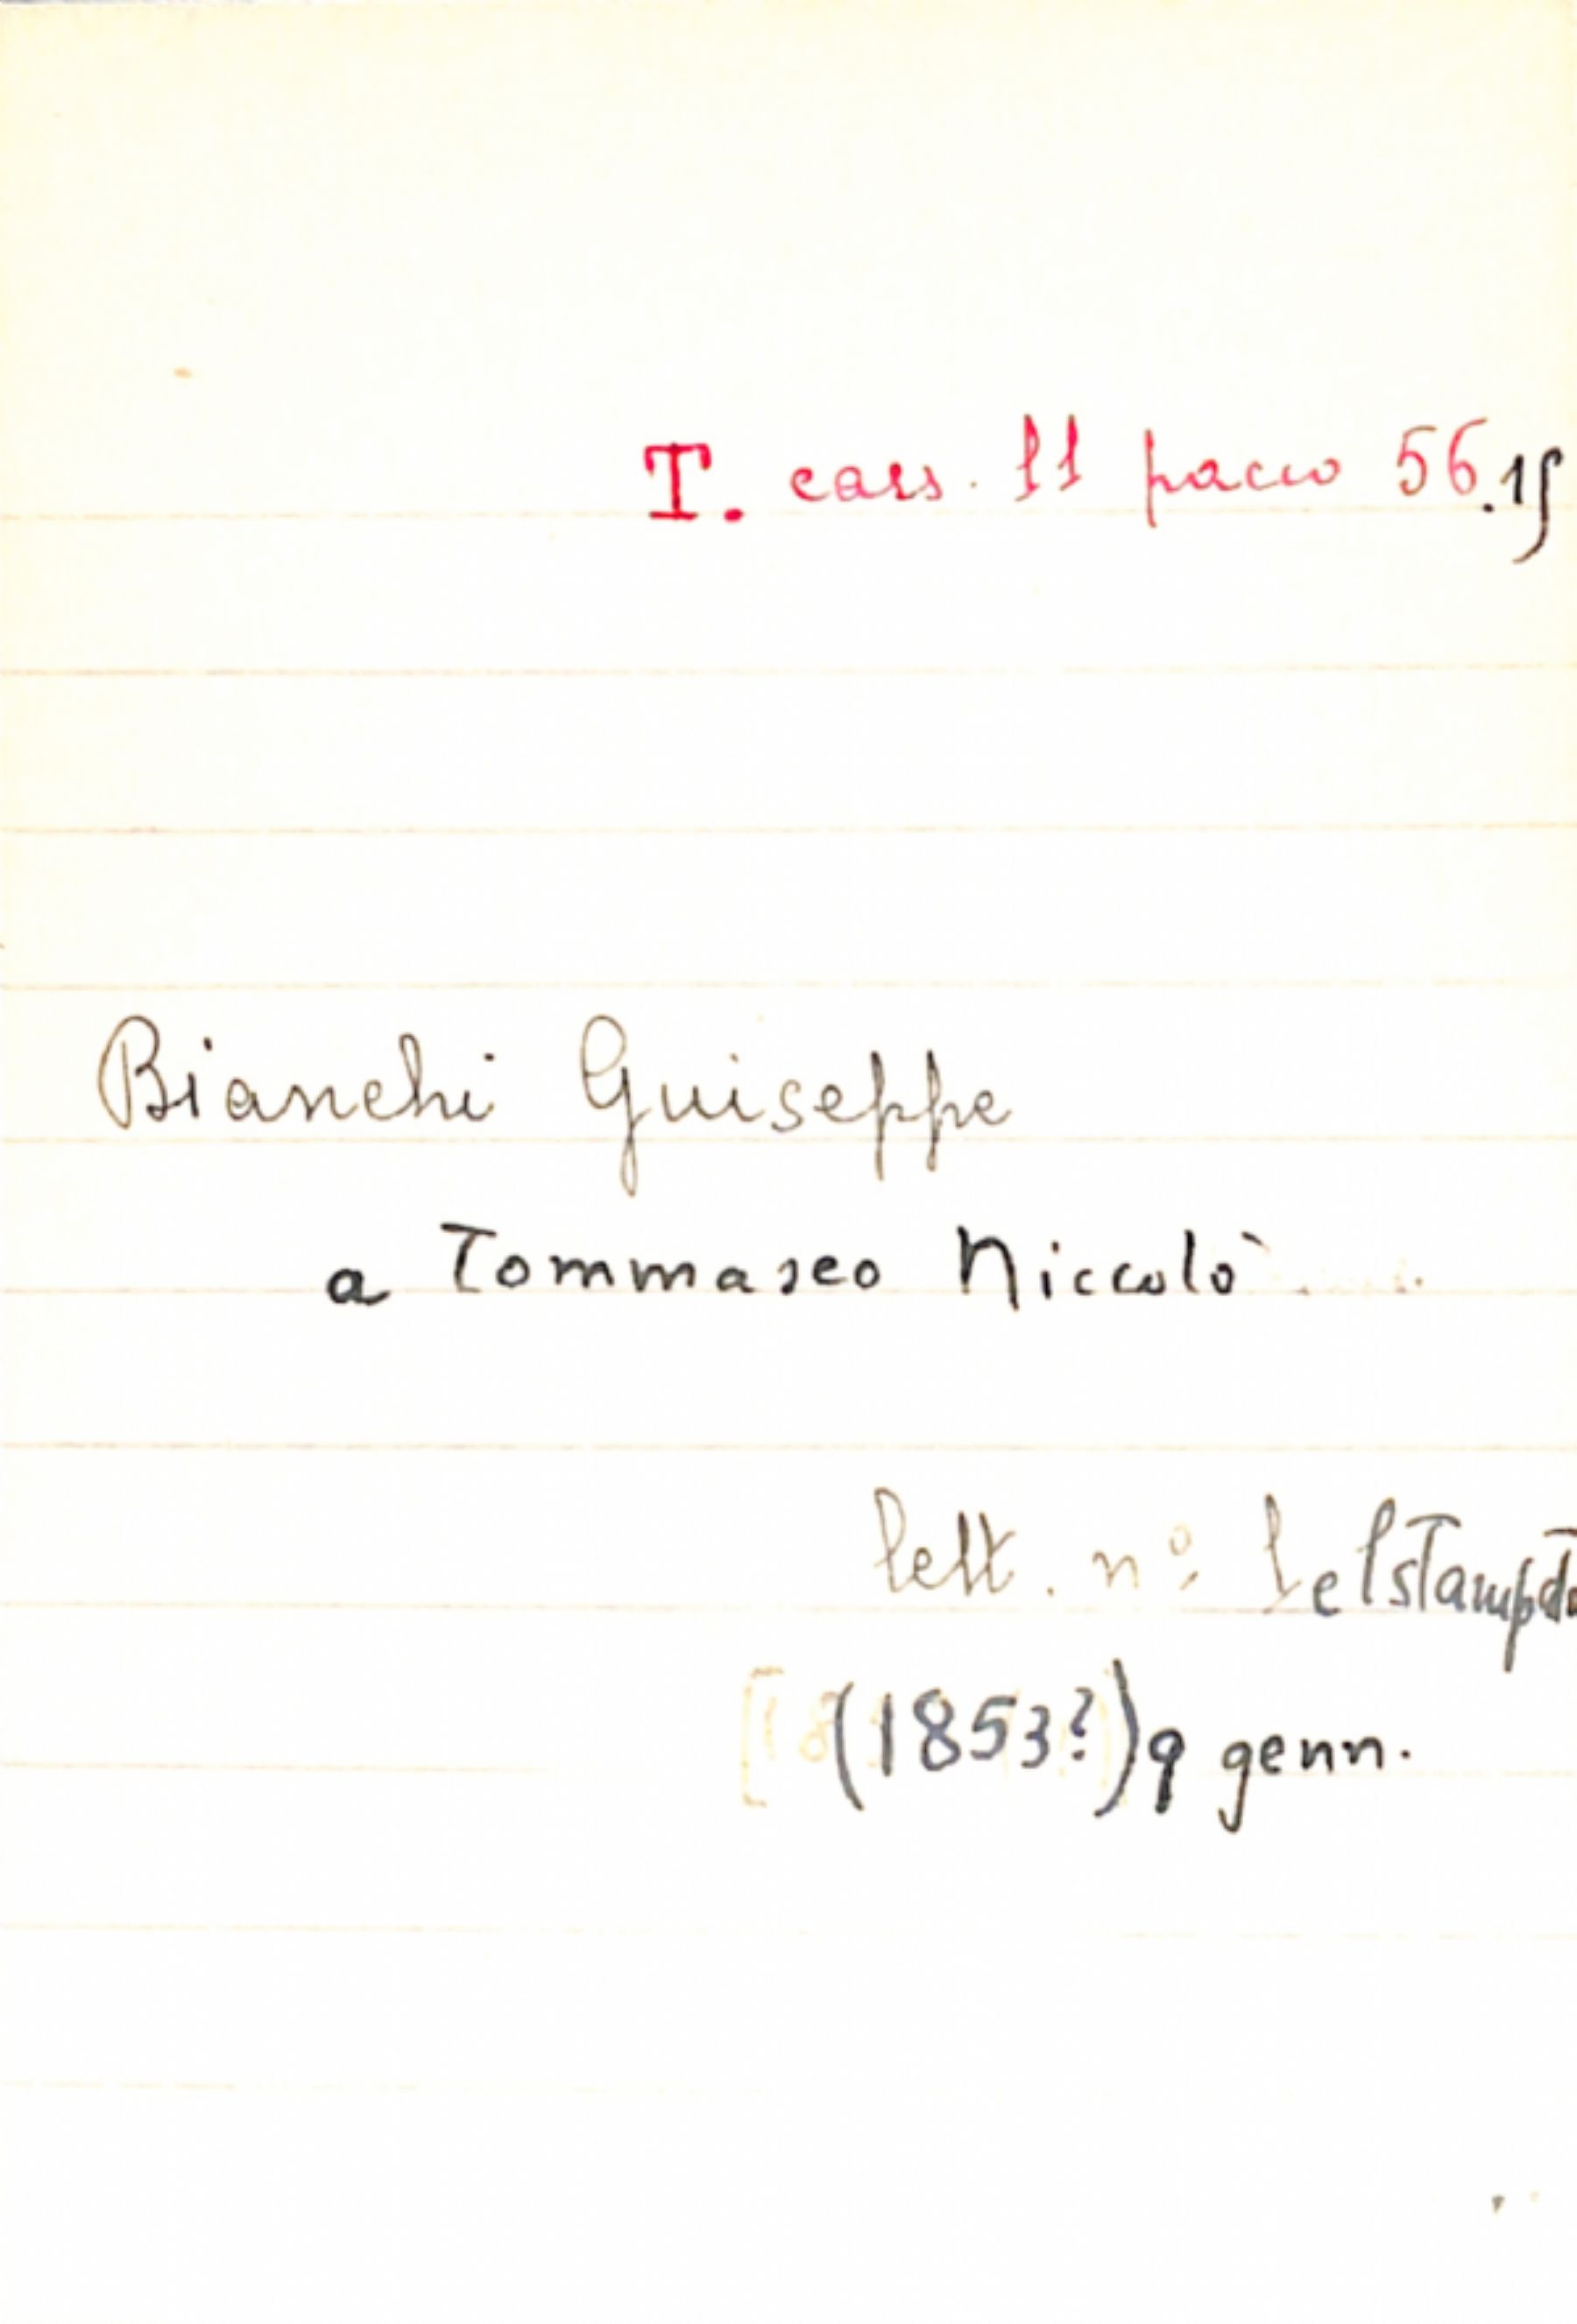 T. cass. 11 pacco 56.15
Bianchi Guiseppe
a Tommaseo Niccolò
lett. n° 1 e 1 stampato
(1853?) 9 genn.